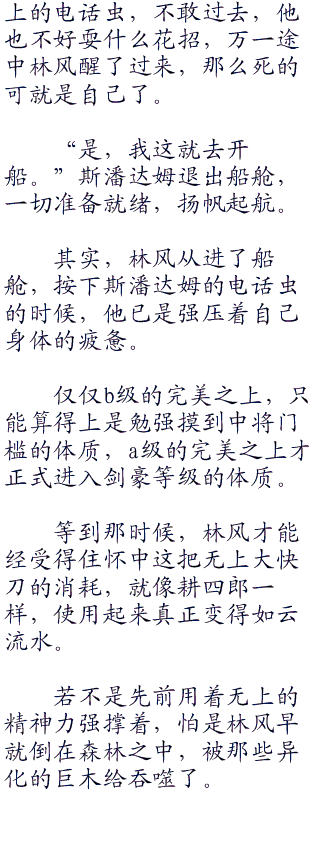 上的电话虫，不敢过去，他
也不好耍什么花招，万一途
中林风醒了过来，那么死的
可就是自己了。
“是，我这就去开
船。”斯潘达姆退出船舱，
一切准备就绪，扬帆起航。
其实，林风从进了船
舱，按下斯潘达姆的电话虫
的时候，他已是强压着自己
身体的疲惫。
仅仅b级的完美之上，只
能算得上是勉强摸到中将门
槛的体质，a级的完美之上才
正式进入剑豪等级的体质。
等到那时候，林风才能
经受得住怀中这把无上大快
刀的消耗，就像耕四郎一
样，使用起来真正变得如云
流水。
若不是先前用着无上的
精神力强撑着，怕是林风早
就倒在森林之中，被那些异
化的巨木给吞噬了。